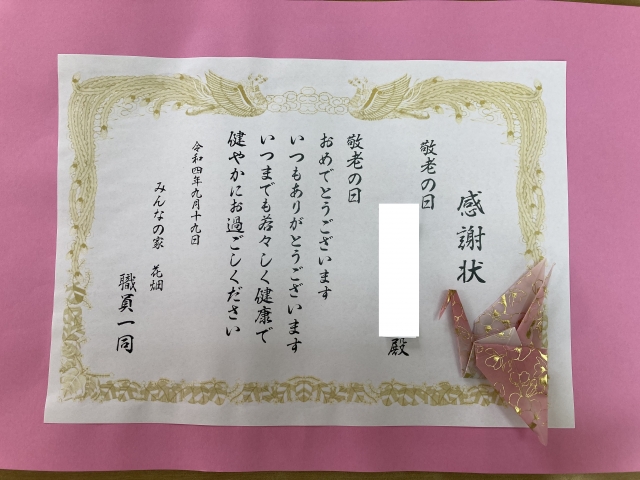 感謝状
敬老の日
殿
敬老の日
おめでとうございます
いつもありがとうございます
いつまでも若々しく健康で
健やかにお過ごしください
令和四年九月十九日
みんなの家 花畑
職員一同